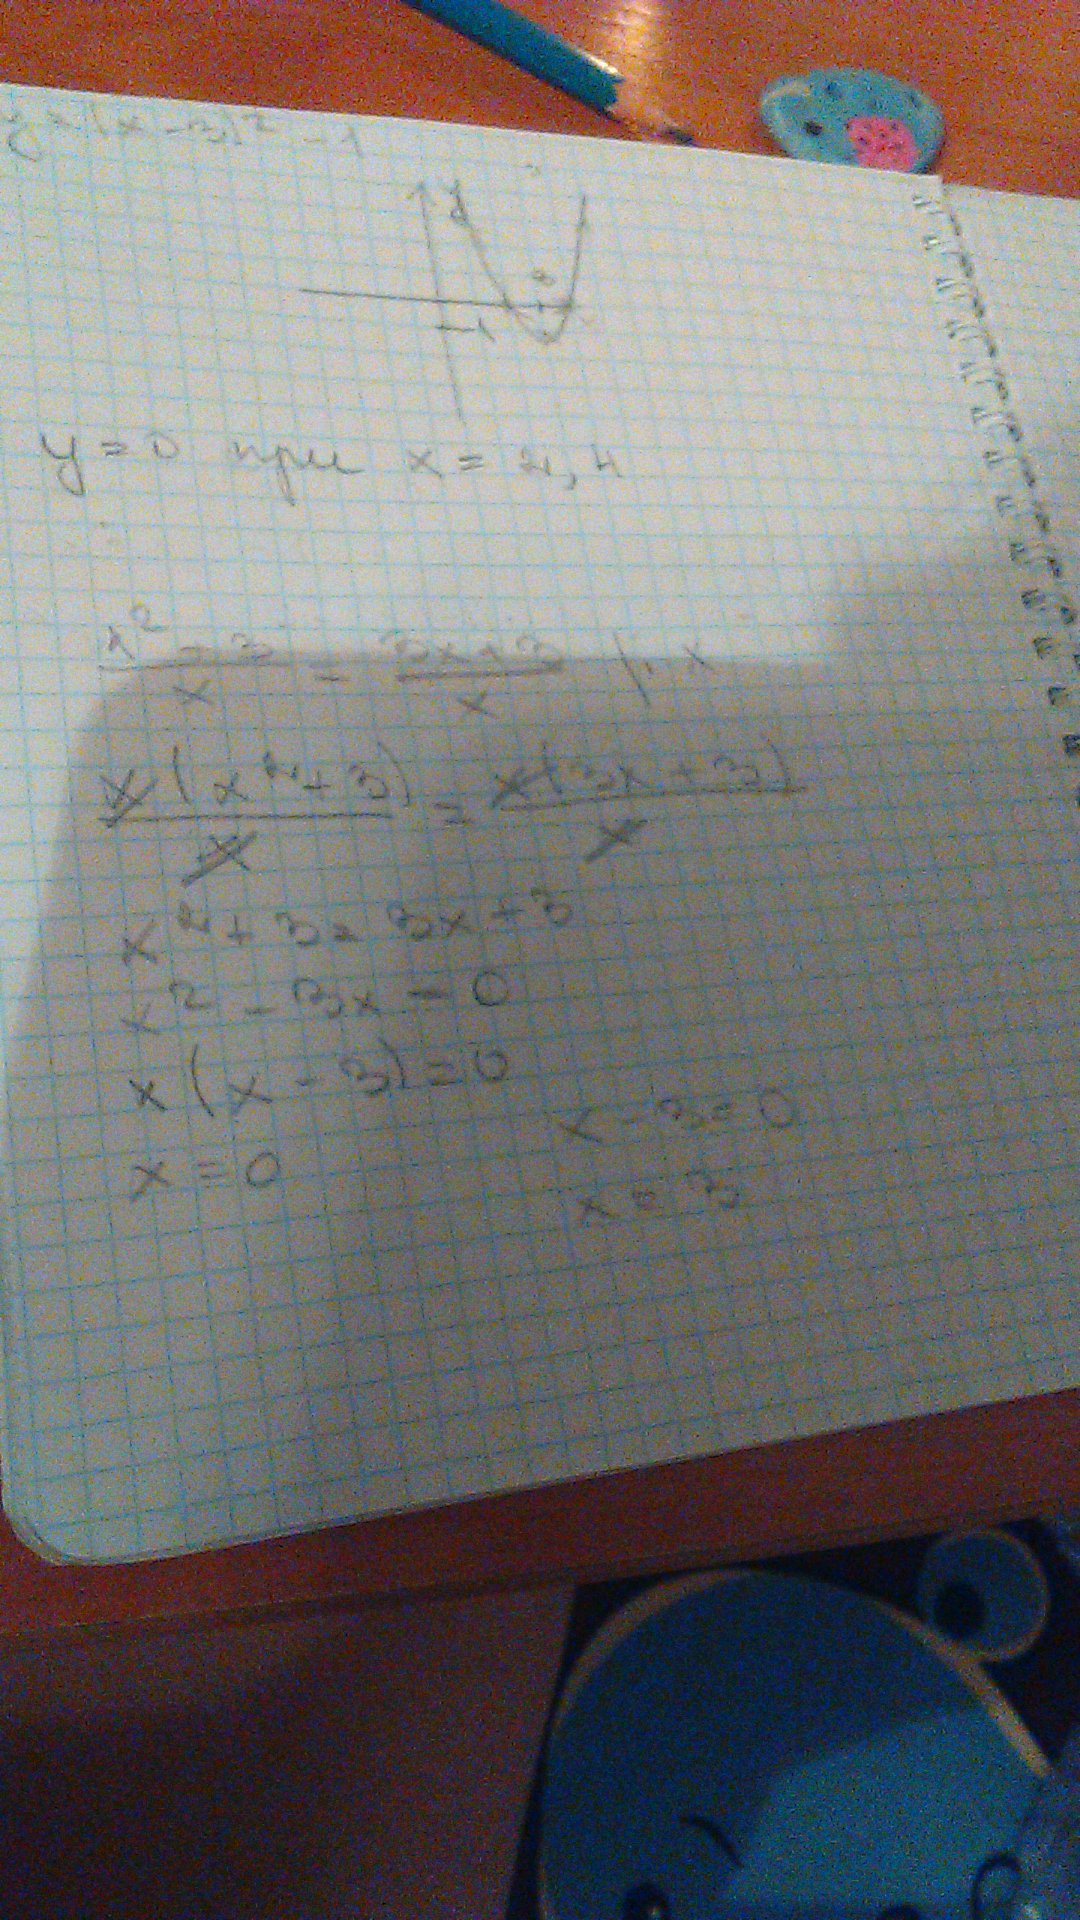 y = (x - 3)² - 1
y
3
-1
y = 0 при x = 2, 4
x² + 3 / x = 3x + 3 / x |· x
x(x² + 3) / x = x(3x + 3) / x
x² + 3 = 3x + 3
x² - 3x = 0
x(x - 3) = 0
x = 0    x - 3 = 0
x = 3